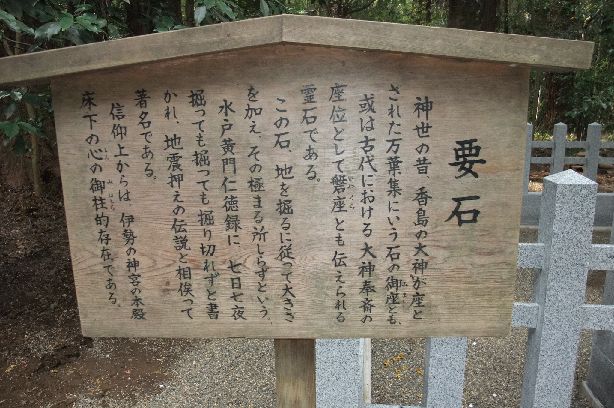 要石
神世の昔 香島の大神が座と
された万葉集にいう石の御座とも、
或は古代における大神奉斎の
座位として磐座とも伝えられる
霊石である。
この石、地を掘るに従って大きさ
を加え、その極まる所しらずという。
水戸黄門仁徳録に 七日七夜
掘っても掘っても掘り切れずと書
かれ、地震押えの伝説と相俟って
著名である。
信仰上からは、伊勢の神宮の本殿
床下の心の御柱的存在である。